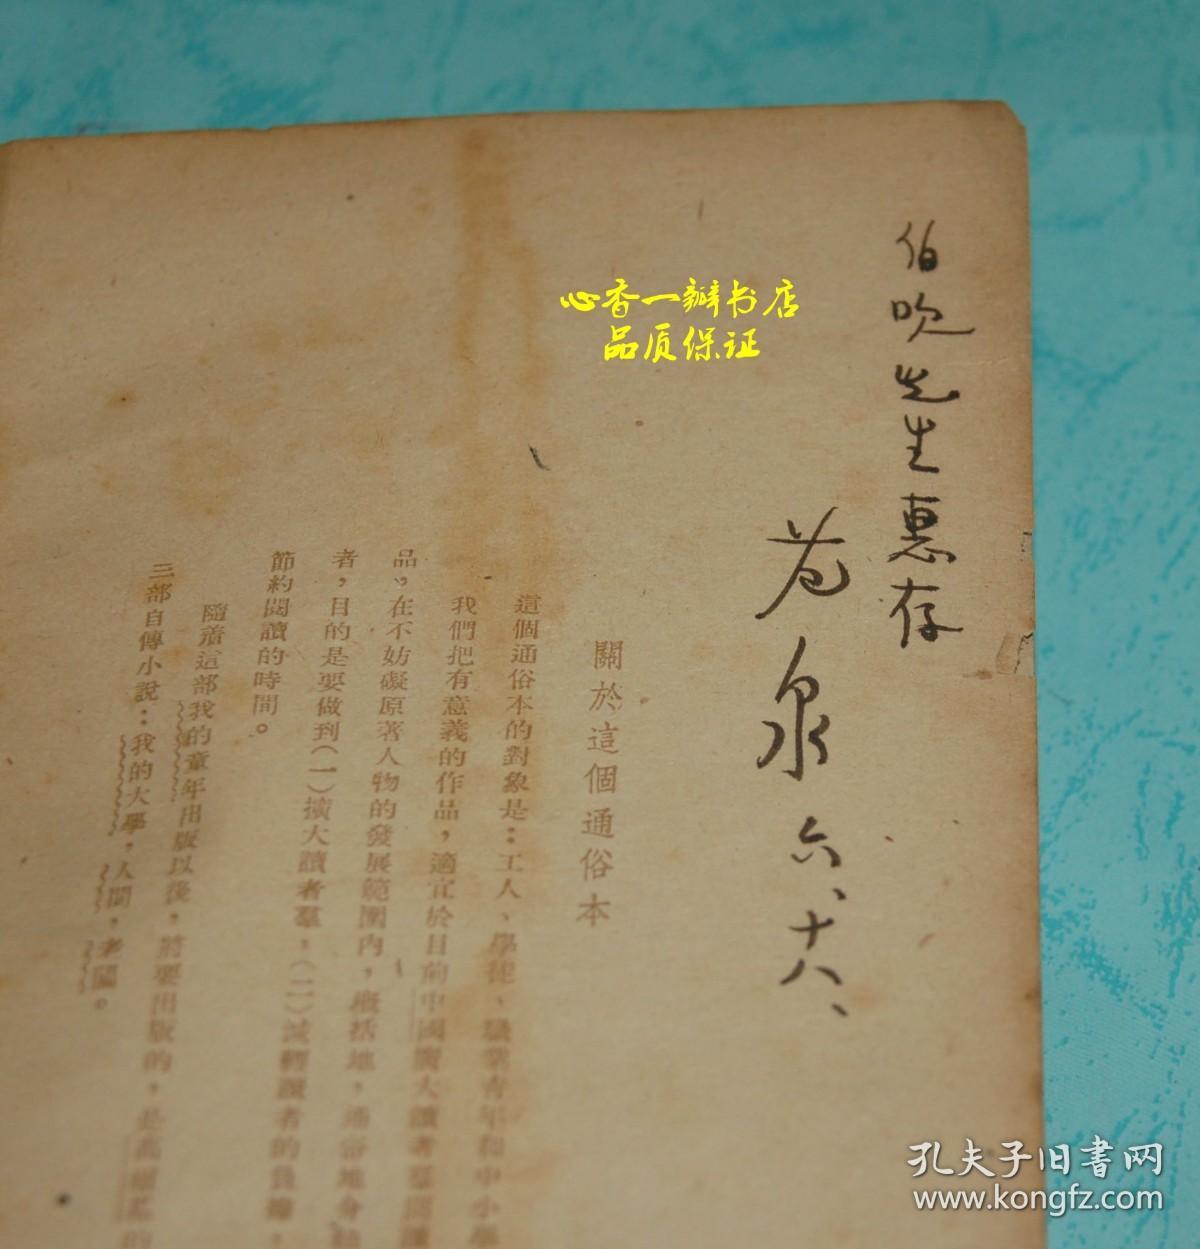 伯吹先生惠存
范泉 六、十八、
心香一瓣书店
品质保证
關於這個通俗本
這個通俗本的對象是：工人、學徒、職業青年和中小學
我們把有意義的作品，適宜於目前中國廣大讀者羣閱讀
品，在不妨礙原著人物的發展範圍內，概括地，通俗地
者，目的是要做到（一）擴大讀者羣，（二）減輕讀者的負擔，
節約閱讀的時間。
隨着這部我的童年出版以後，將要出版的，是高爾基的
三部自傳小說：我的大學，人間，老闆。
孔夫子旧书网
www.kongfz.com